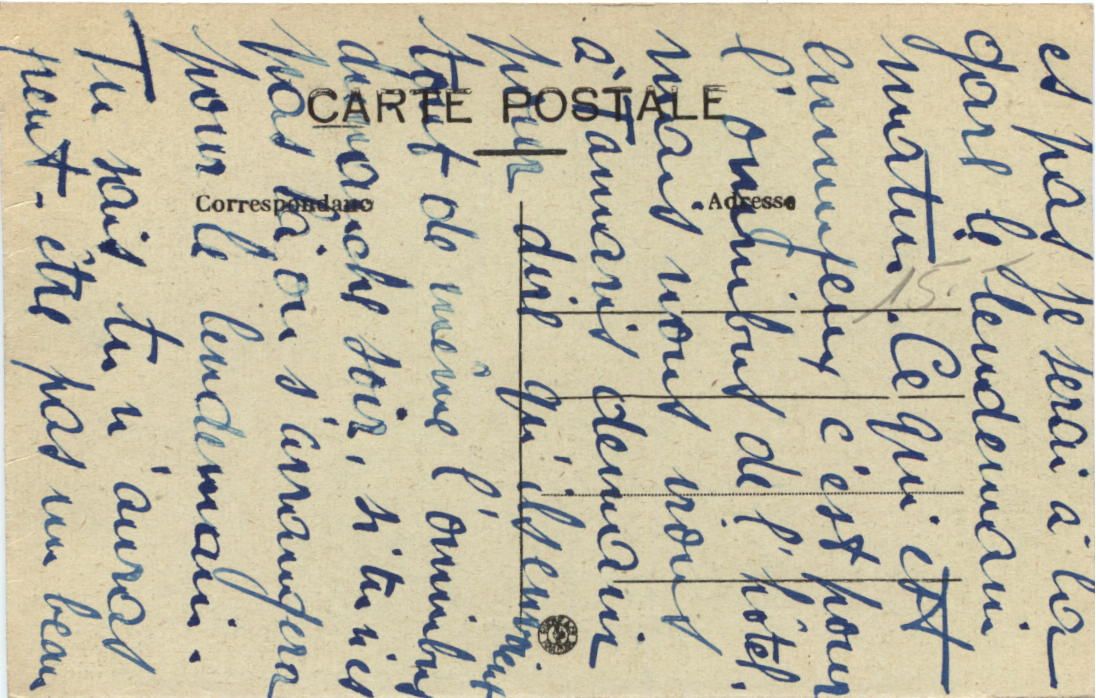 CARTE POSTALE
Correspondance
Adresse
15
es pas je serai à la
gare le lendemain
matin. Ce qui est
ennuyeux c'est pour
l'omnibus de l'hôtel.
mais nous irons
à Tamaris demain
pour dire qu'ils envoient
tout de même l'omnibus
dimanche soir, si tu n'es
pas là on s'arrangera
pour le lendemain.
Tu sais tu n'auras
peut-être pas un beau